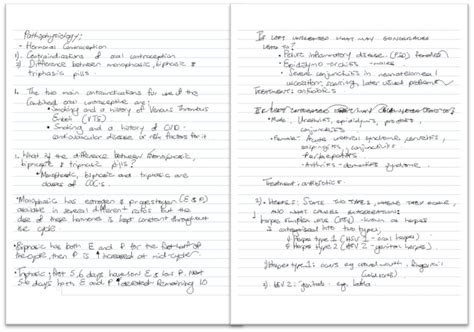 Pathophysiology:
- Hormonal Contraception
1). Contraindications of oral contraception
2) Difference between monophasic, biphasic &
triphasic pills.
1. The two main contraindications for use of the
Combined oral contraceptive are:
• Smoking and a history of Venous Thrombus
Event (VTE)
• Smoking and a history of CVD -
cardiovascular disease or risk factors for it
2. What is the difference between monophasic,
biphasic & triphasic pills?
• Monophasic, biphasic and triphasic are
classes of COC's.
• Monophasic has estrogen & progestogen (E & P)
available in several different ratios but the
dose of these hormones is kept constant throughout
the cycle.
• Biphasic has both E and P for the first half of
the cycle, then P is increased at mid-cycle.
• Triphasic: First 5,6 days have low E & low P, next
5,6 days both E and P elevated. Remaining 10
If left untreated what may gonorrhoea
lead to?
• Pelvic Inflammatory disease (PID) females
• males
• Severe conjunctivitis in neonates
scarring, later visual problems
Treatment: antibiotics
If left untreated
• Male: Urethritis, epididymis, proctitis,
conjunctivitis
• Female: Acute urethral syndrome, cervicitis,
salpingitis, conjunctivitis
• Perihepatitis
• Arthritis - syndrome
Treatment: antibiotics.
2) Herpes: State the types, where they occur,
and what causes
herpes simplex virus (HSV) herpes
categorised into two types:
Herpes type 1 (HSV 1 - oral herpes)
Herpes type 2 (HSV 2 - genital herpes)
Herpes type 1: occurs eg. mouth,
(cold sores)
HSV 2: genitals - eg. labia